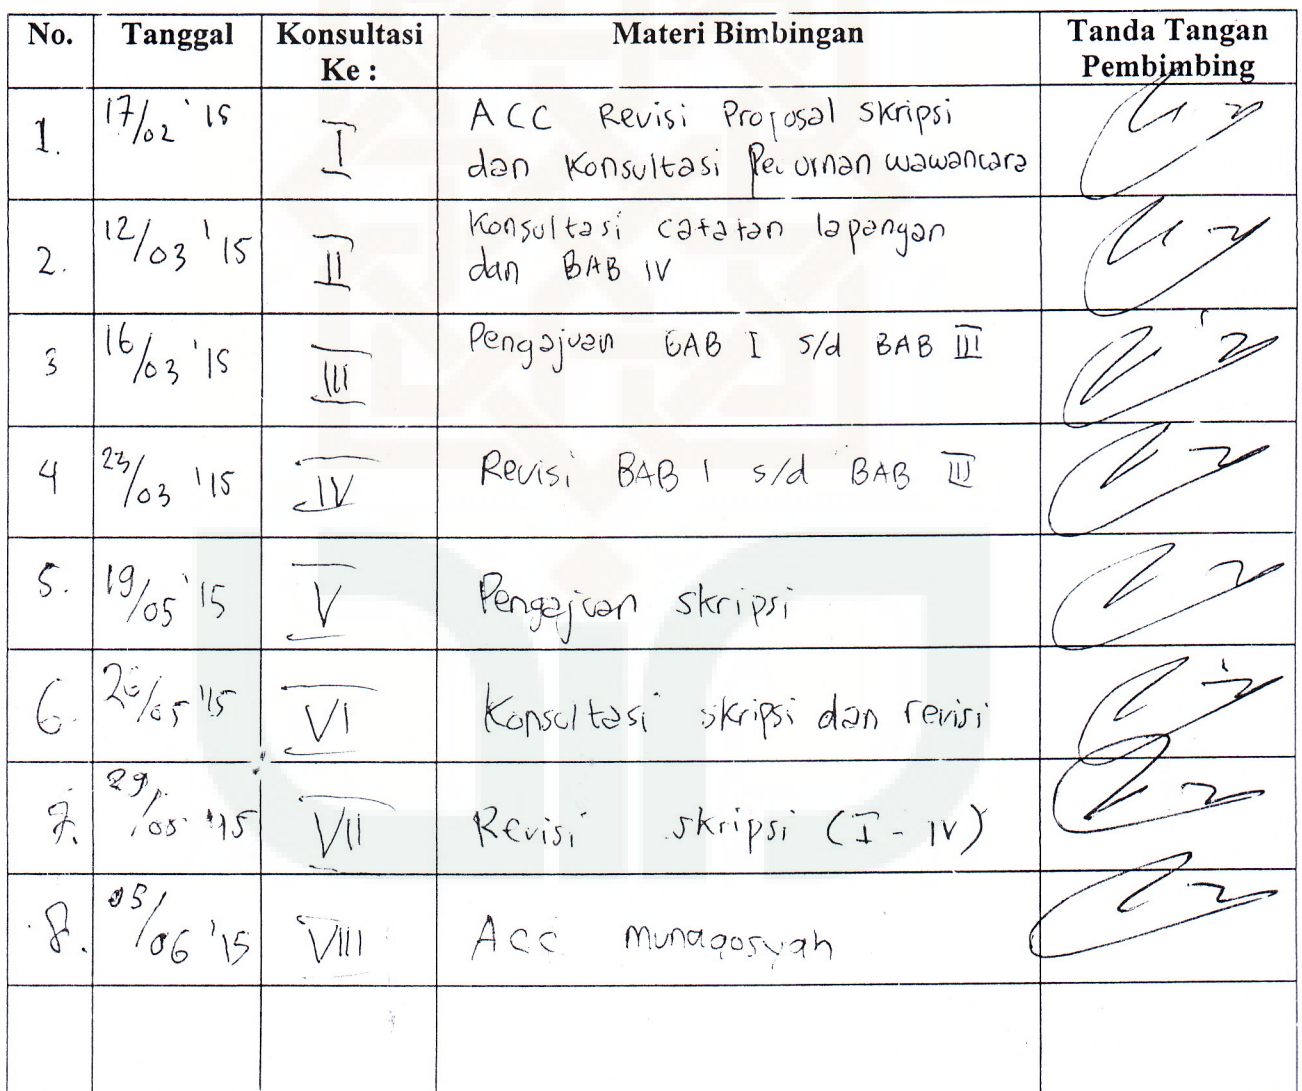 No. Tanggal Konsultasi Ke : Materi Bimbingan Tanda Tangan Pembimbing
1. 17/02 '15 I ACC Revisi Proposal skripsi
dan Konsultasi wawancara
2. 12/03 '15 II Konsultasi catatan lapangan
dan BAB IV
3 16/03 '15 III Pengajuan BAB I s/d BAB III
4 23/03 '15 IV Revisi BAB I s/d BAB III
5. 19/05 '15 V Pengajuan skripsi
6. 26/05 '15 VI Konsultasi skripsi dan revisi
7. 29/05 '15 VII Revisi skripsi (I - IV)
8. 05/06 '15 VIII Acc munaqosyah